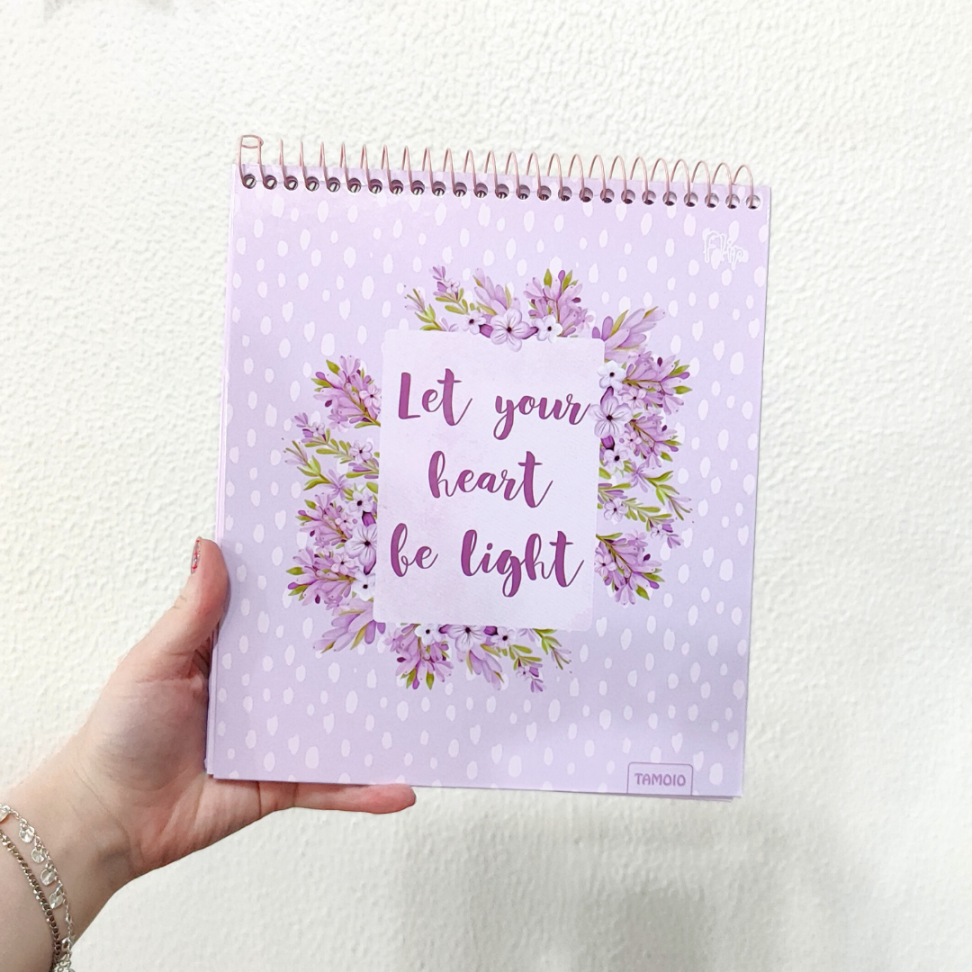 Flip
Let your
heart
be light
TAMOIO